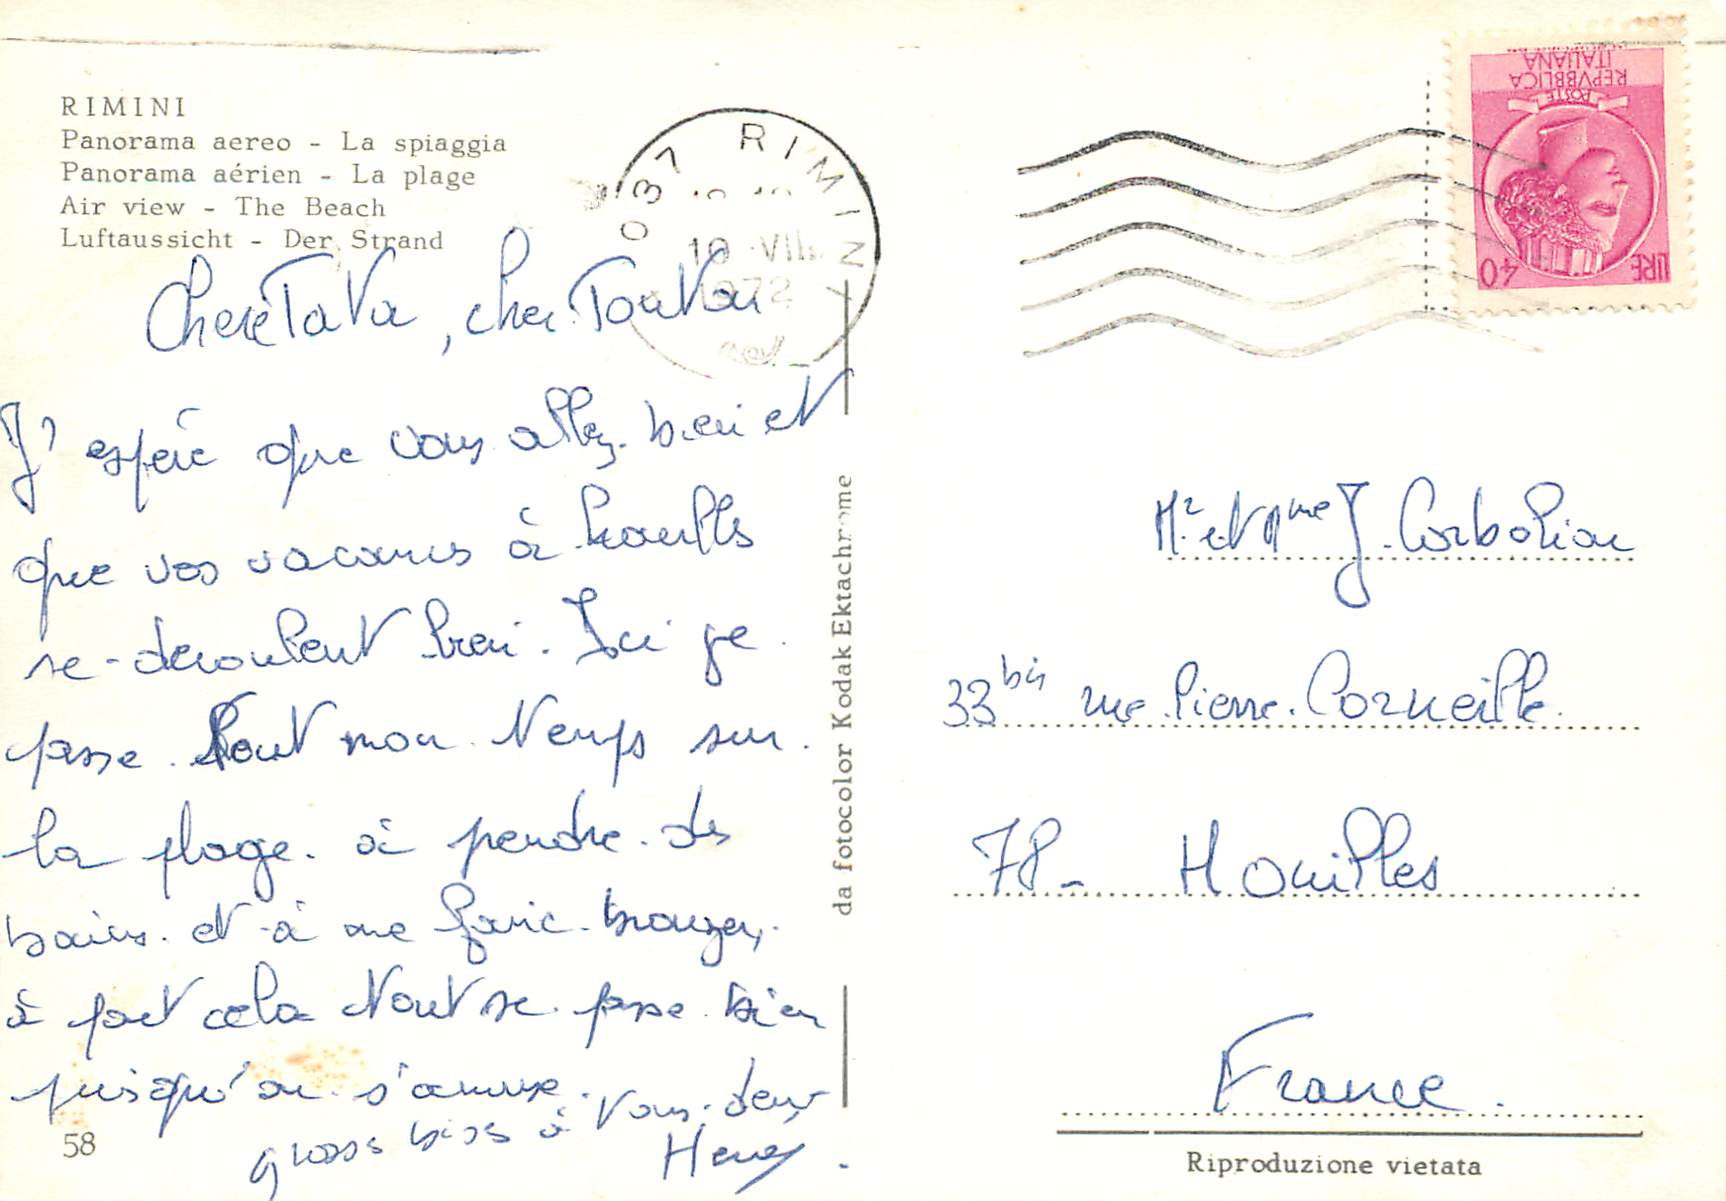 RIMINI
Panorama aereo - La spiaggia
Panorama aérien - La plage
Air view - The Beach
Luftaussicht - Der Strand
037 RIMINI
10 VII
1972
POSTE
REPVBBLICA
ITALIANA
LIRE 40
Chere Tata, cher Tonton
J'espère que vous allez bien et
que vos vacances à houilles
se deroulent bien. Ici je
passe tout mon temps sur
la plage à prendre des
bains et à me faire bronzer,
à part cela tout se passe bien
puisqu'on s'amuse.
gross biss à vous deux
58
da fotocolor Kodak Ektachrome
Mr et Mme J.
33 bis rue Pierre Corneille
78 - Houilles
France.
Riproduzione vietata